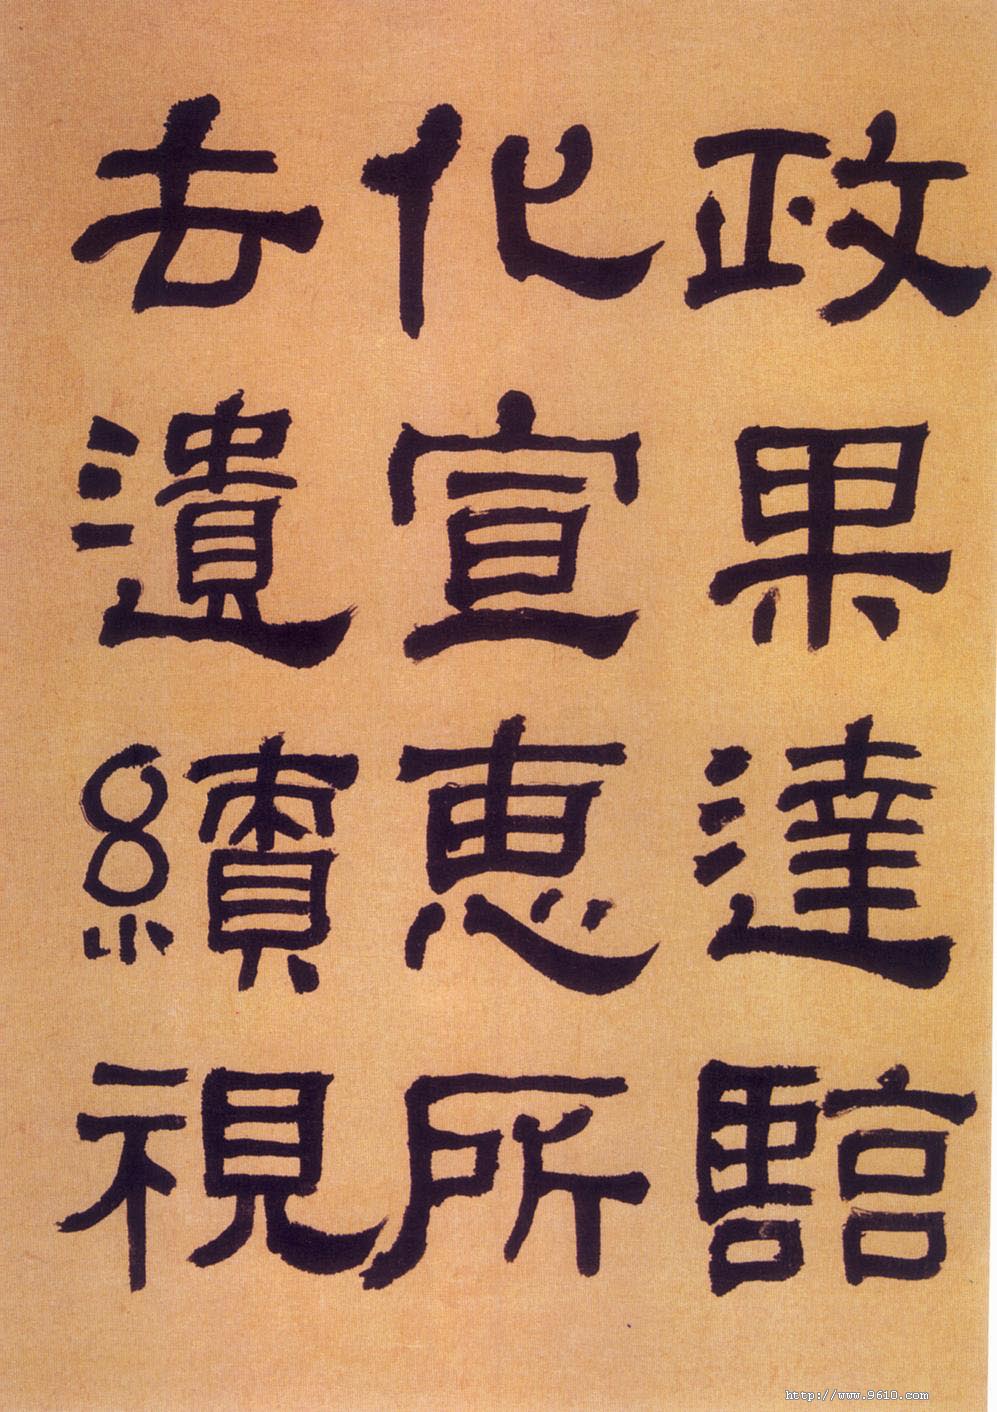 政果達臨
化宣惠所
去遺績視
http://www.9610.com